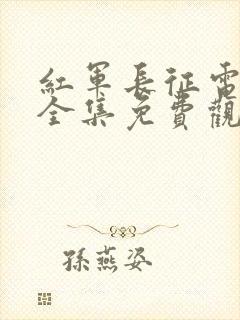 紅軍長征電
全集免費觀
孫燕姿